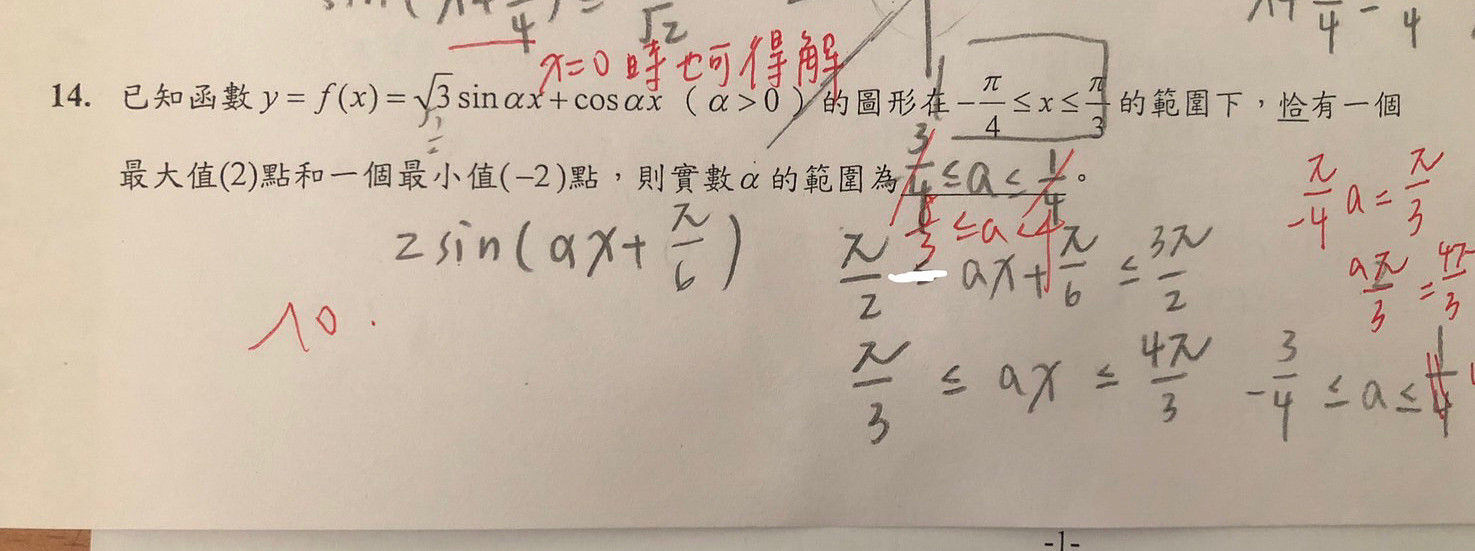 x=0時也可得解
14. 已知函數 y = f(x) = √3 sin αx + cos αx （α > 0）的圖形在 -π/4 ≤ x ≤ π/3 的範圍下，恰有一個
最大值(2)點和一個最小值(-2)點，則實數 α 的範圍為 3/4 ≤ a ≤ 1/4。
≤ a < 4
2sin(ax + π/6)
π/2 ≤ ax + π/6 ≤ 3π/2
π/3 ≤ ax ≤ 4π/3
-3/4 ≤ a ≤
π/-4 a = π/3
aπ/3 = 4π/3
10.
-1-